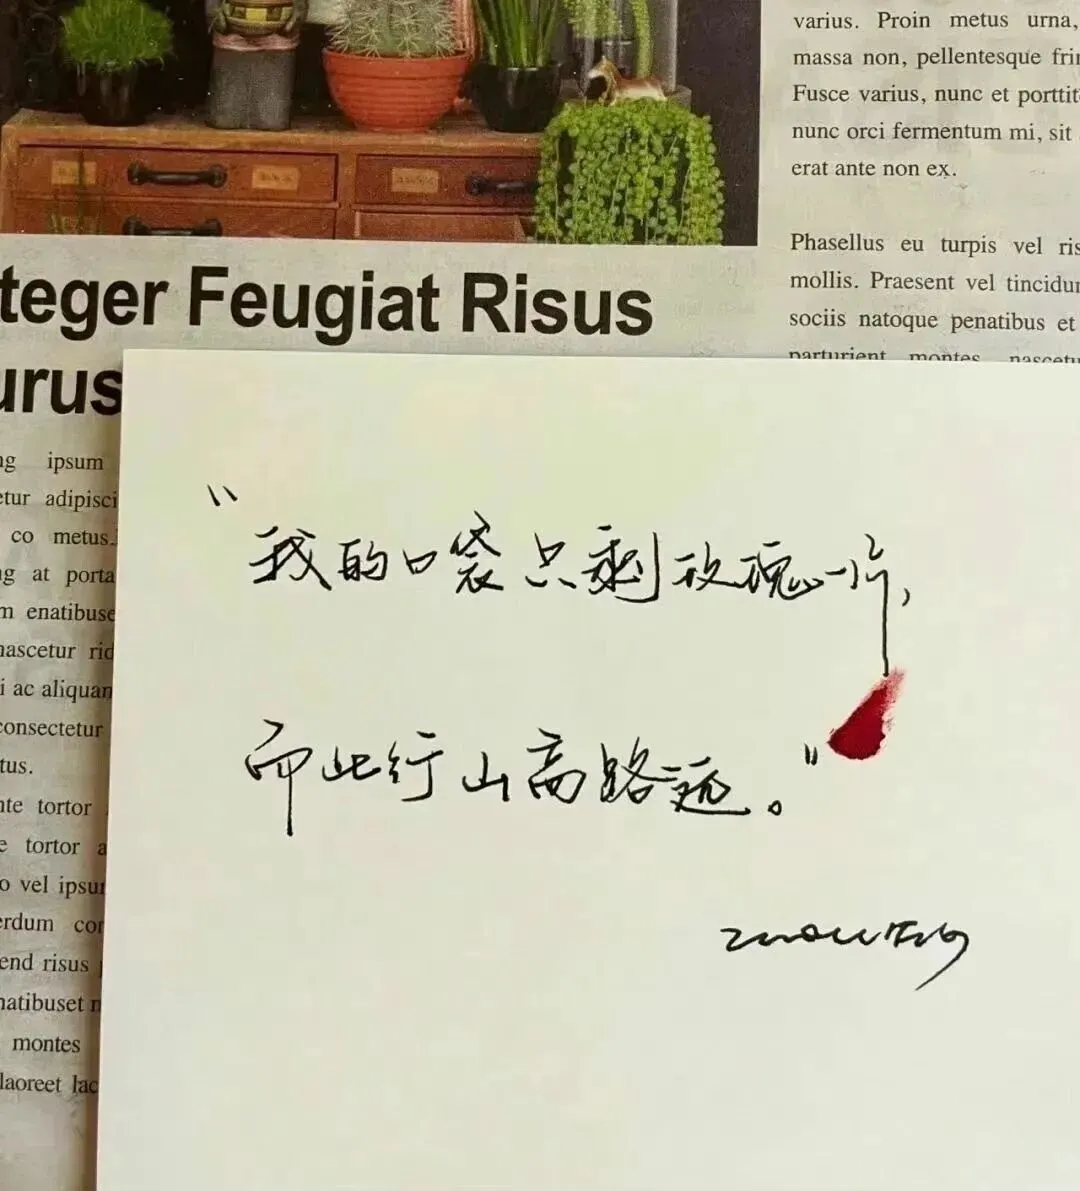 varius. Proin metus urna,
massa non, pellentesque
Fusce varius, nunc et
nunc orci fermentum mi, sit
erat ante non ex.
Phasellus eu turpis vel
mollis. Praesent vel
sociis natoque penatibus et
parturient montes
teger Feugiat Risus
urus
ng ipsum
etur
co metus.
ng at porta
m enatibus
nascetur
i ac
consectetur
tus.
nte tortor
e tortor
o vel
erdum
end risus
natibuset
montes
laoreet
"我的口袋只剩玫瑰一片,
而此行山高路远。"